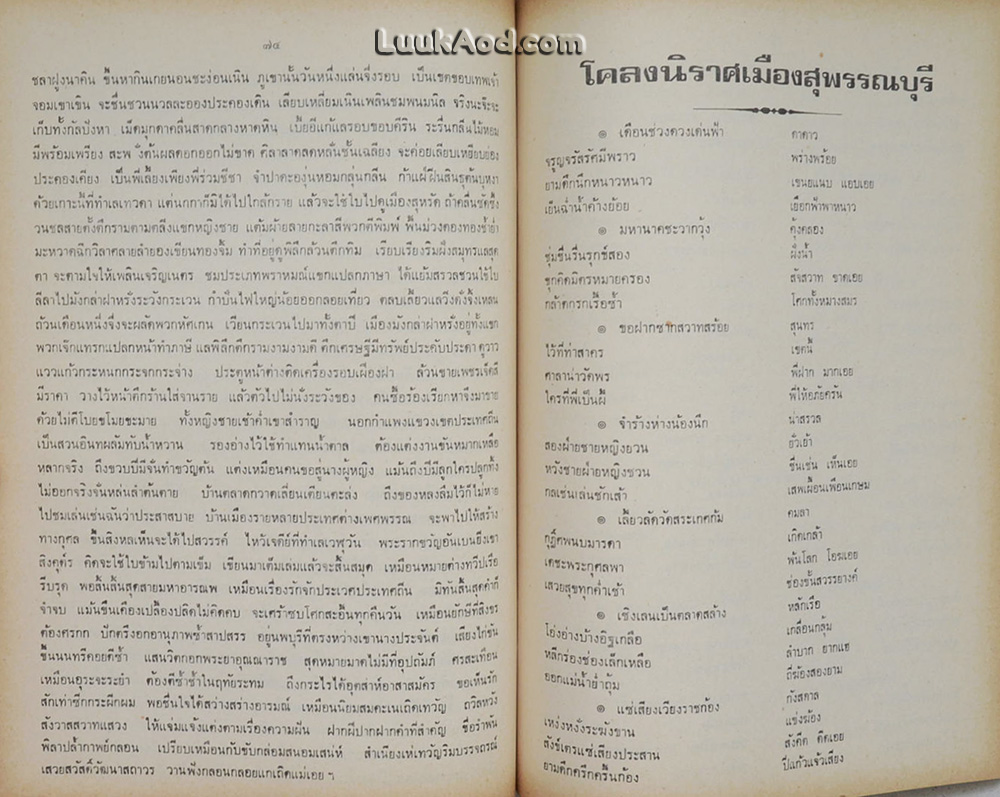 LuukAod.com
๗๔
ชลาฝูงนาคิน ขึ้นหากินเกยนอนชะง่อนเนิน ภูเขานั้นวันหนึ่งแล่นจึ่งรอบ เป็นเขตขอบเทพเจ้า
จอมเขาเขิน จะชื่นชวนนวลละอองประคองเดิน เลียบเหลี่ยมเนินเพลินชมพนมนิล จริงนะจ๊ะจะ
เก็บทั้งกัลปังหา เม็ดมุกดาคลื่นสาดกลางหาดหิน เบี้ยอี้แก้แลรอบขอบคีริน ระรื่นกลิ่นไม้หอม
มีพร้อมเพรียง สะพ พั่งต้นผลดอกออกไม่ขาด ศิลาลาดสลหลั่นชั้นเฉลียง จะค่อยเลียบเหยียบย่อง
ประคองเคียง เป็นพี่เลี้ยงเพียงพี่ร่วมชีวา จำปาดะองุ่นหอมกลุ่นกลิ่น กำแผ่ฝิ่นสินธุต้นบุหงา
ด้วยเกาะนี้ที่ทำเลเทวดา แต่นกกาก็มิได้ไปใกล้กราย แล้วจะใช้ใบไปดูเมืองสุหรัด ถ้าคลื่นซัดซึ้ง
วนชลสายตั้งตึกรามตามตลิ่งแขกหญิงชาย แต้มฝ้ายลายกะลาสีพวกตีพิมพ์ พื้นม่วงตองทองช้ำย่ำ
มะหวาดฉีกวิลาศลายลำยองเขียนทองจิ้ม ทำที่อยู่ดูพิลึกล้วนตึกทิม เรียบเรียงริมฝั่งสมุทรแลสุด
ตา จะตามใจให้เพลินเจริญเนตร ชมประเภทพราหมณ์แขกแปลกภาษา ได้แย้มสรวลชวนใช้ใบ
ลีลาไปมังกล่าฝาหรั่งระวังกระเวน กำปั่นไฟใหญ่น้อยออกลอยเที่ยว ตลบเลี้ยวแลวิ่งดั่งจิ้งเหลน
ถ้วนเดือนหนึ่งจึ่งจะผลัดพวกหัศเกน เวียนกระเวนไปมาทั้งตาปี เมืองมังกล่าฝาหรั่งอยู่ทั้งแขก
พวกเจ๊กแทรกแปลกหน้าทำภาษี แลพิลึกตึกรามงามงามดี ตึกเศรษฐีมีทรัพย์ประดับประดา ดูวาว
แวววแก้วกระหนกกระจกกระจ่าง ประตูหน้าต่างติดเครื่องรอบเฝืองฝา ล้วนขายเพชรเจ็ดสี
มีราคา วางไว้หน้าตึกร้านใส่จานราย แล้วตัวไปไม่นั่งระวังของ คนซื้อร้องเรียกหาจึงมาขาย
ด้วยไม่มีโบยขโมยขะมาย ทั้งหญิงชายเช้าค่ำเขาสำราญ นอกกำแพงแขวงเขตประเทศถิ่น
เป็นสวนอินทผลัมทับน้ำหวาน รองอ่างไว้ใช้ทำแทนน้ำตาล ต้องแต่งงานขันหมากเหลือ
หลากจริง ถึงขวบปีมีจั่นทำขวัญต้น แต่งเหมือนคนขอสู่นางผู้หญิง แม้นถึงปีมีลูกใครปลูกทิ้ง
ไม่ออกจริงจั่นหล่นลำต้นตาย บ้านตลาดกวาดเลี่ยนเตียนตะล่ง ถึงของหลงลืมไว้ก็ไม่หาย
ไปชมเล่นเช่นฉันว่าประสาสบาย บ้านเมืองรายหลายประเทศต่างเพศพรรณ จะพาไปให้สร้าง
ทางกุศล ขึ้นสิงหลเห็นจะได้ไปสวรรค์ ไหว้เจดีย์ที่ทำเลเวฬุวัน พระรากขวัญอันเบนยิ่งเขา
สิงคุตร์ คิดจะใช้ใบข้ามไปตามเข็ม เขียนมาเต็มเล่มแล้วจะสิ้นสมุด เหมือนหมายต่างทวีปเรือ
รีบรุด พอสิ้นสิ้นสุดสายมหาอารณพ เหมือนเรื่องรักจักประเวศประเทศถิ่น มิทันสิ้นสุดคำก็
จำจบ แม้นขืนเคืองเปลื้องปลิดไม่คิดคบ จะเศร้าซบโศกสะอื้นทุกคืนวัน เหมือนยักษีที่สิงขร
ต้องศรกก ปักตรึงอกอานุภาพซ้ำสาปสรร อยู่นพบุรีที่ตรงหว่างเขานางประจันต์ เสียงไก่ขัน
ขึ้นนนทรีคอยตีซ้ำ แสนวิตกอกพระยาอุณณาราช สุดหมายมาดไม่มีที่อุปถัมภ์ ศรสะเทือน
เหมือนอุระจะระยำ ต้องตีซ้ำช้ำในฤทัยระทม ถึงกระไรได้อุตส่าห์อาสาสมัคร ขอเห็นรัก
สักเท่าซีกกระผีกผม พอชื่นใจได้สว่างสร่างอารมณ์ เหมือนนิยมสมคะเนเถิดเทวัญ ถวิลหวัง
สังวาสสวาทแสวง ให้แจ่มแจ้งแต่งตามเรื่องความฝัน ฝากฝีปากฝากคำที่สำคัญ ชื่อรำพัน
พิลาปล้ำกาพย์กลอน เปรียบเหมือนกับขับกล่อมสนอมเสน่ห์ สำเนียงเห่เทวัญริมบรรจถรณ์
เสวยสวัสดิ์วัฒนาสถาวร วานฟังกลอนกลอยแกเถิดแม่เอย ฯ
โคลงนิราศเมืองสุพรรณบุรี
๏ เดือนช่วงดวงเด่นฟ้า ดาดาว
จรูญจรัสรัศมีพราว พร่างพร้อย
ยามดึกนึกหนาวหนาว เขนยแนบ แอบเอย
เย็นฉ่ำน้ำค้างย้อย เยือกฟ้าพาหนาว
๏ มหานาคชะวากวุ้ง คุ้งคลอง
ชุ่มชื่นรื่นรุกข์สอง ฝั่งน้ำ
ขุกคิดมิตรหมายครอง สัจสวาท ขาดเอย
กล้าตกรกเรื้อซ้ำ โศกทั้งหมางสมร
๏ ขอฝากซากสวาทสร้อย สุนทร
ไว้ที่ท่าสาคร เขตนี้
ศาลาน่าวัดพร พี่ฝาก มากเอย
ใครที่พี่เป็นผี้ พี่ให้อภัยครัน
๏ จำร้างห่างน้องนึก น่าสรวล
สองฝ่ายชายหญิงยวน ยั่วเย้า
หวังชายฝ่ายหญิงชวน ชื่นเช่น เห็นเอย
กลเช่นเล่นชักเส้า เสพเผื่อนเพื่อนเกษม
๏ เลี้ยวลัดวัดสระเกศก้ม คมลา
กุฏิ์ศพนบมารดา เกิดเกล้า
เดชะพระกุศลพา พ้นโลก โอฆเอย
เสวยสุขทุกค่ำเช้า ช่องชั้นสวรรยางค์
๏ เชิงเลนเป็นตลาดสล้าง หลักเรือ
โอ่งอ่างบ้างอิฐเกลือ เกลื่อนกลุ้ม
หลีกร่องช่องเล็กเหลือ ลำบาก ยากแฮ
ออกแม่น้ำย่ำถุ้ม ถี่ฆ้องสองยาม
๏ แซ่เสียงเวียงราชก้อง กังสดาล
เหง่งหงั่งระฆังขาน แข่งฆ้อง
สังข์แตรแซ่เสียงประสาน สังคีต คีดเอย
ยามดึกครึกครื้นก้อง ปี่แก้วแจ้วเสียง